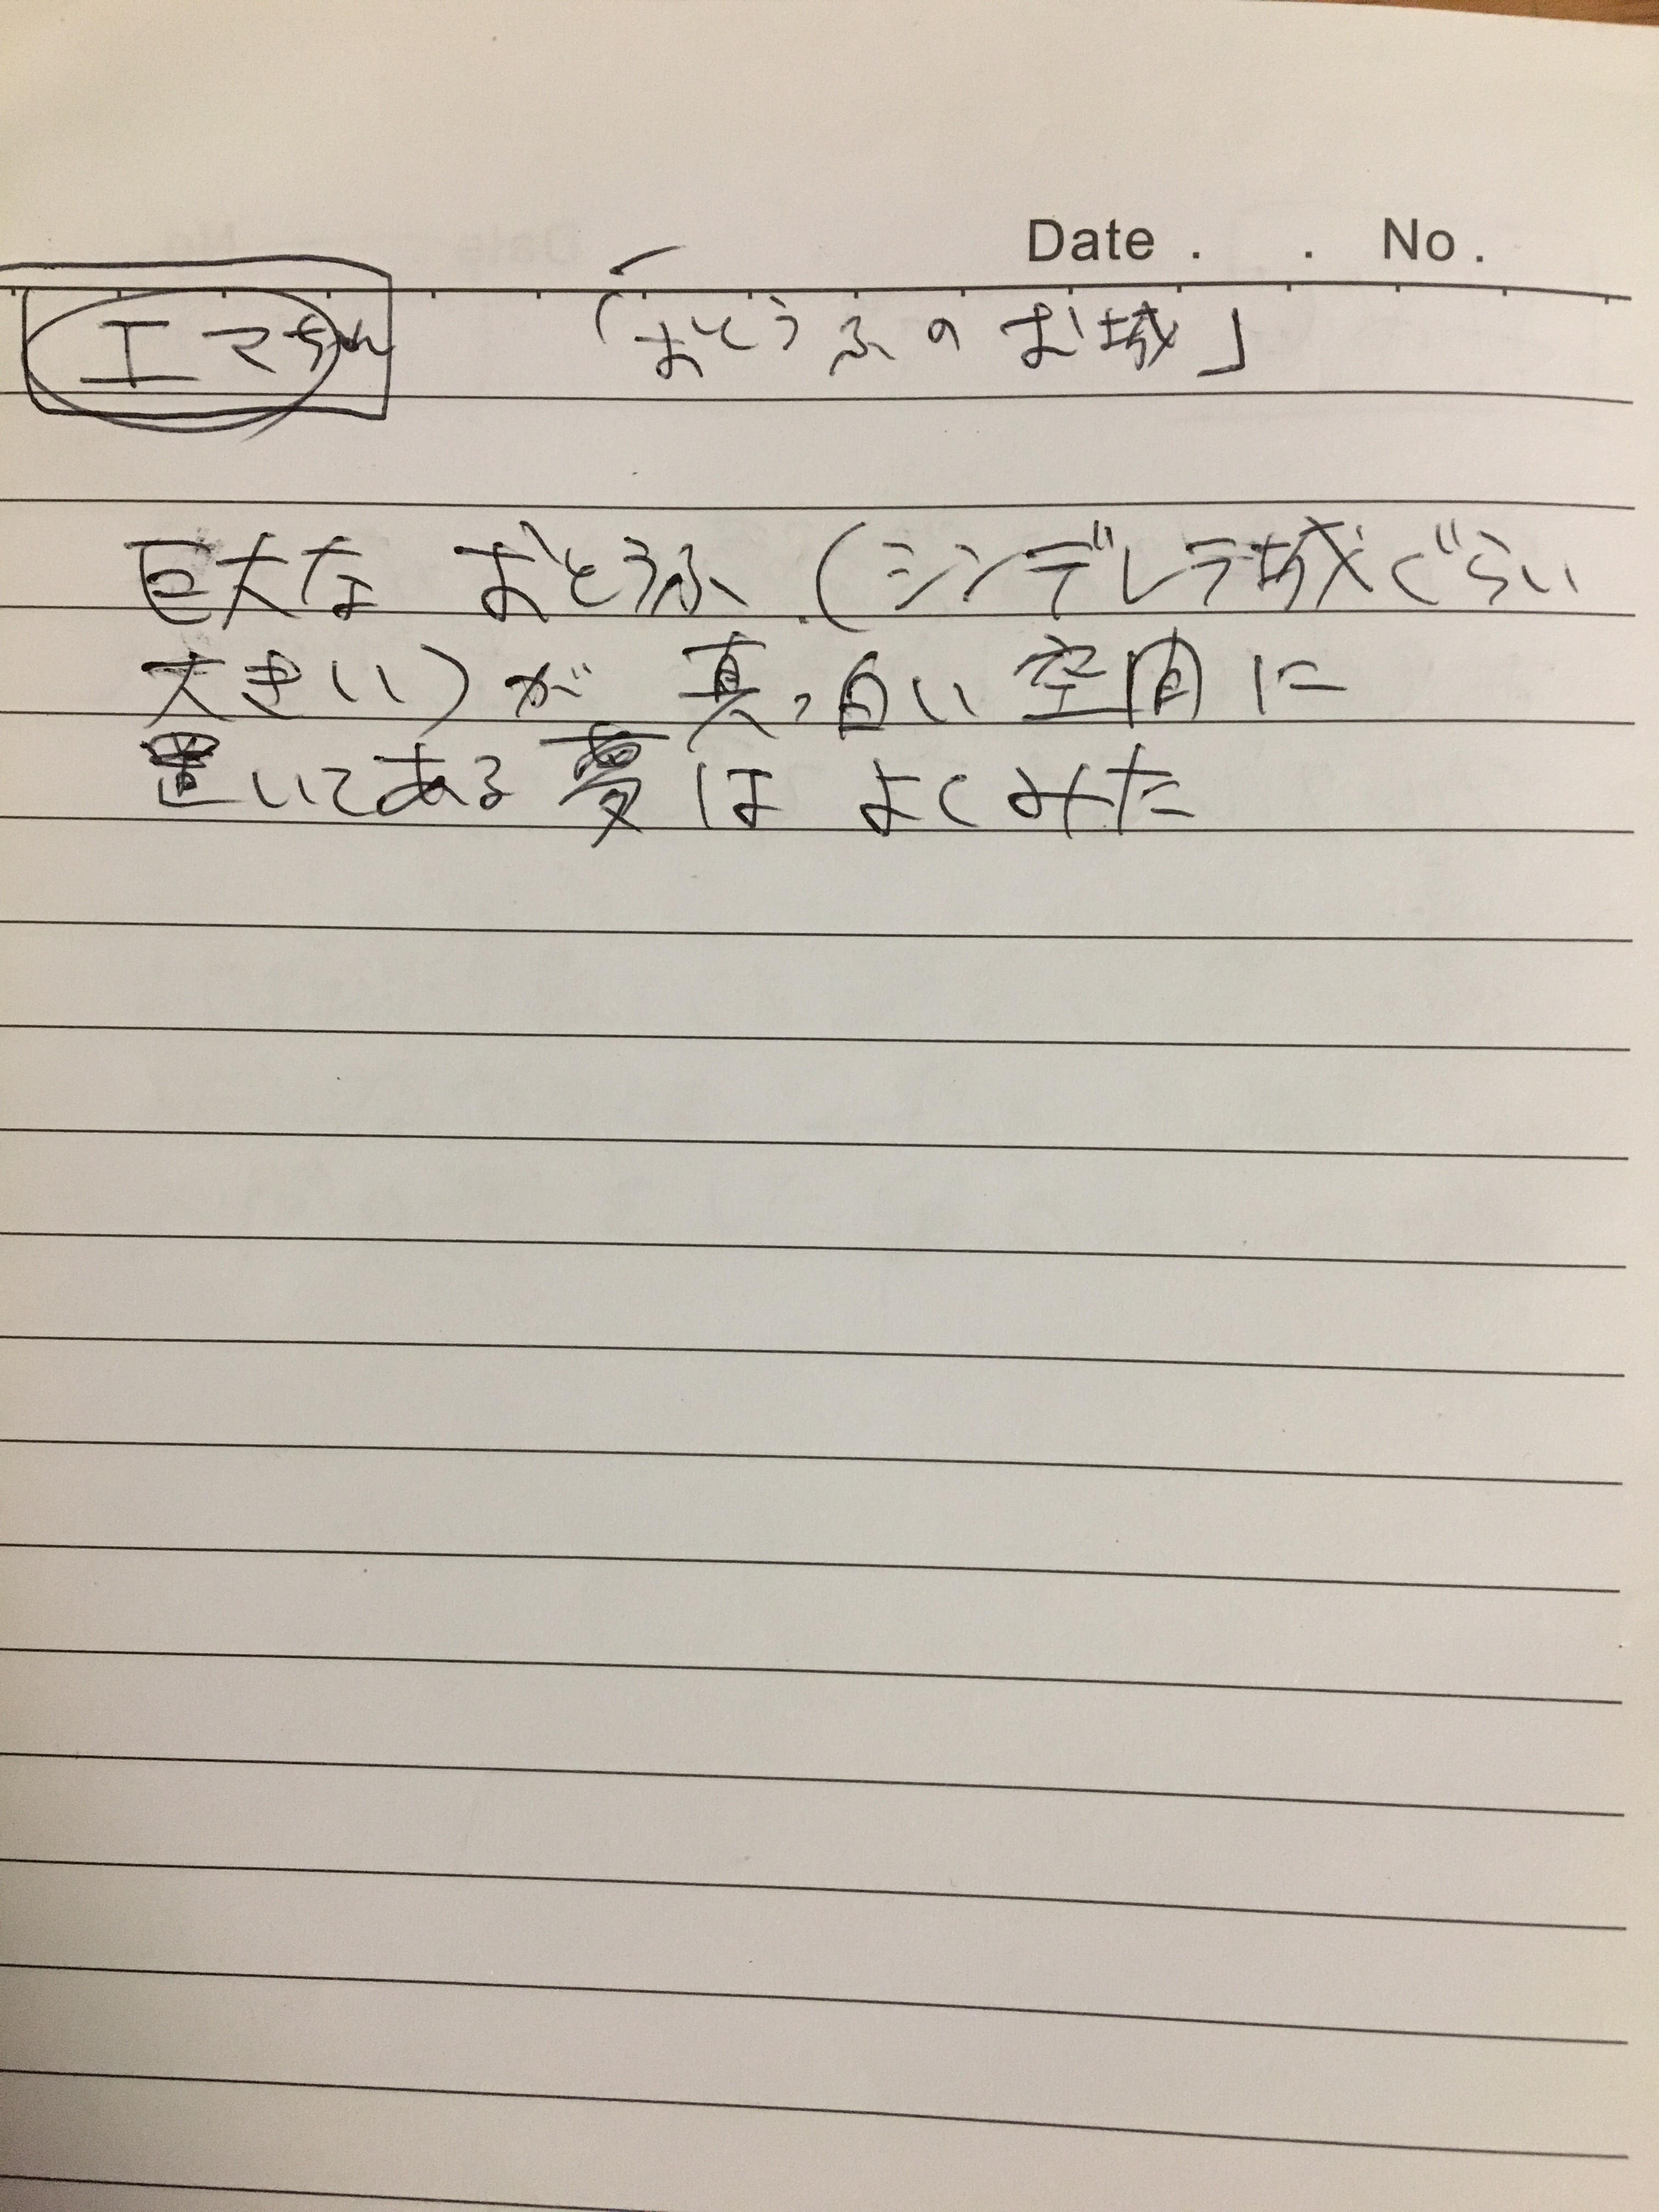 Date . . No .
エマちゃん 「おとうふのお城」
巨大な おとうふ (シンデレラ城ぐらい
大きい)が 真っ白い 空間に
置いてある夢は よくみた